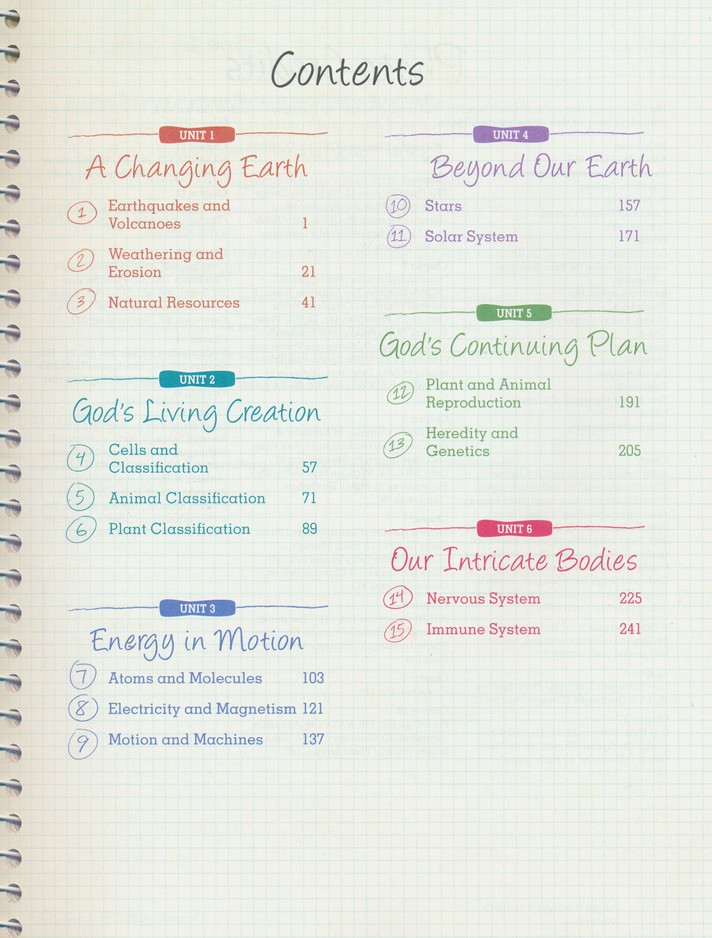 Contents
UNIT 1
A Changing Earth
1 Earthquakes and
Volcanoes 1
2 Weathering and
Erosion 21
3 Natural Resources 41
UNIT 2
God's Living Creation
4 Cells and
Classification 57
5 Animal Classification 71
6 Plant Classification 89
UNIT 3
Energy in Motion
7 Atoms and Molecules 103
8 Electricity and Magnetism 121
9 Motion and Machines 137
UNIT 4
Beyond Our Earth
10 Stars 157
11 Solar System 171
UNIT 5
God's Continuing Plan
12 Plant and Animal
Reproduction 191
13 Heredity and
Genetics 205
UNIT 6
Our Intricate Bodies
14 Nervous System 225
15 Immune System 241